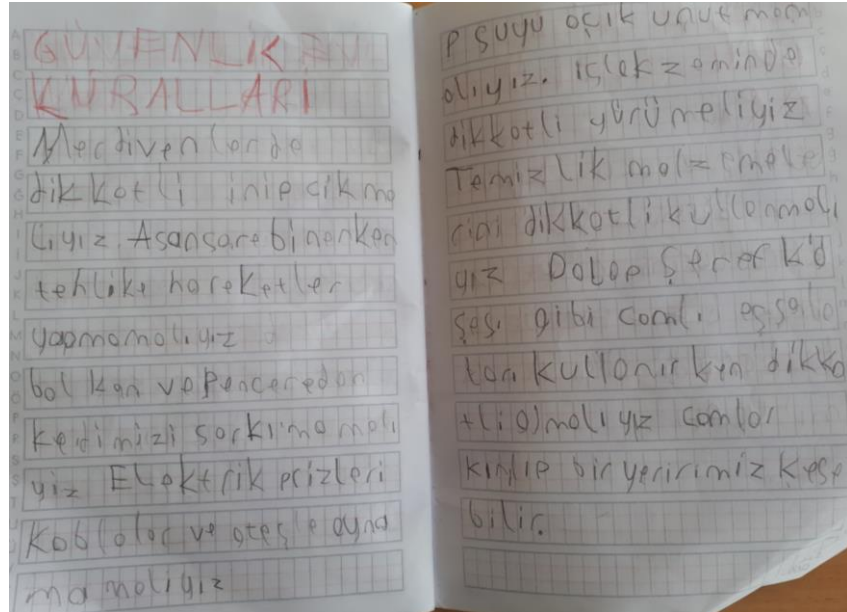 GÜVENLİK
KURALLARI
Merdivenlerde
dikkatli inip çıkma
lıyız. Asansöre binerken
tehlike hareketler
yapmamalıyız
balkon ve pencereden
kedimizi sarkıtmamalı
yız Elektrik prizleri
kablolar ve ateşle oyna
mamalıyız
p suyu açık unutmam
alıyız. ıslak zeminde
dikkatli yürümeliyiz
Temizlik malzemele
rini dikkatli kullanmalı
yız Dolap Şeref
gibi camlı eşyala
ları kullanırken dikka
tli olmalıyız camlar
kırılıp bir yeririmiz kese
bilir.